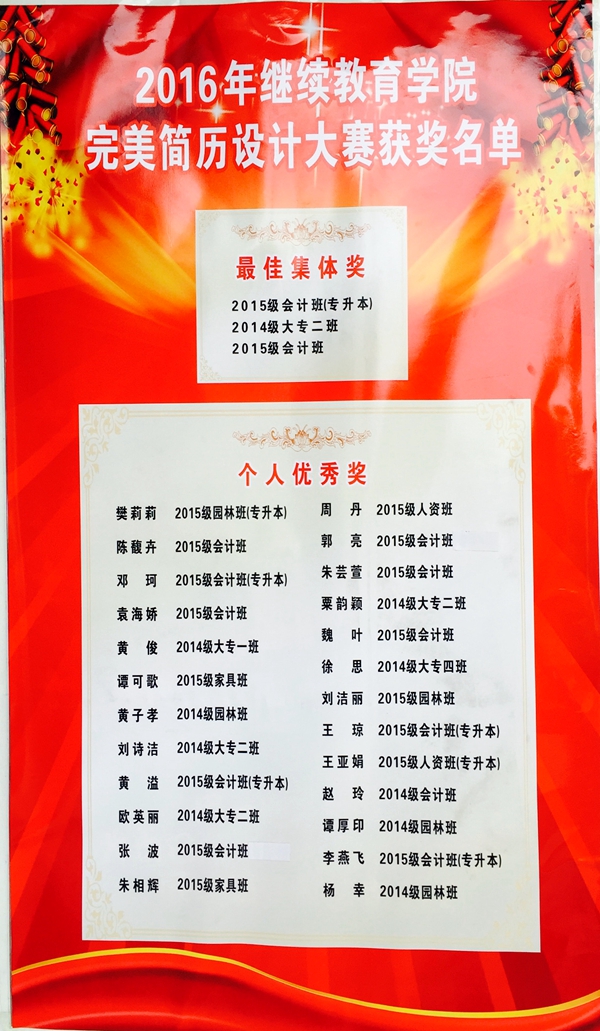 2016年继续教育学院
完美简历设计大赛获奖名单
最佳集体奖
2015级会计班(专升本)
2014级大专二班
2015级会计班
个人优秀奖
樊莉莉 2015级园林班(专升本)
陈馥卉 2015级会计班
邓 珂 2015级会计班(专升本)
袁海娇 2015级会计班
黄 俊 2014级大专一班
谭可歌 2015级家具班
黄子孝 2014级园林班
刘诗洁 2014级大专二班
黄 溢 2015级会计班(专升本)
欧英丽 2014级大专二班
张 波 2015级会计班
朱相辉 2015级家具班
周 丹 2015级人资班
郭 亮 2015级会计班
朱芸萱 2015级会计班
粟韵颖 2014级大专二班
魏 叶 2015级会计班
徐 思 2014级大专四班
刘洁丽 2015级园林班
王 琼 2015级会计班(专升本)
王亚娟 2015级人资班(专升本)
赵 玲 2014级会计班
谭厚印 2014级园林班
李燕飞 2015级会计班(专升本)
杨 幸 2014级园林班